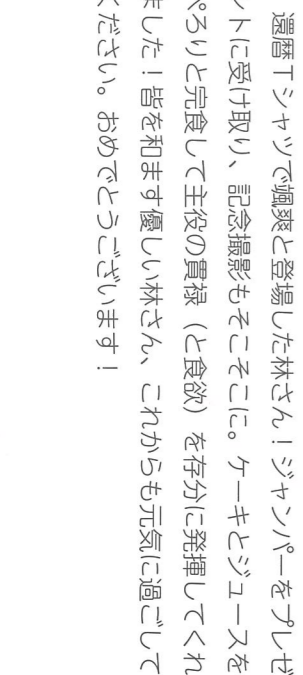 還暦Ｔシャツで颯爽と登場した林さん！ジャンパーをプレゼ
ントに受け取り、記念撮影もそこそこに。ケーキとジュースを
ぺろりと完食して主役の貫禄（と食欲）を存分に発揮してくれ
ました！皆を和ます優しい林さん、これからも元気に過ごして
ください。おめでとうございます！